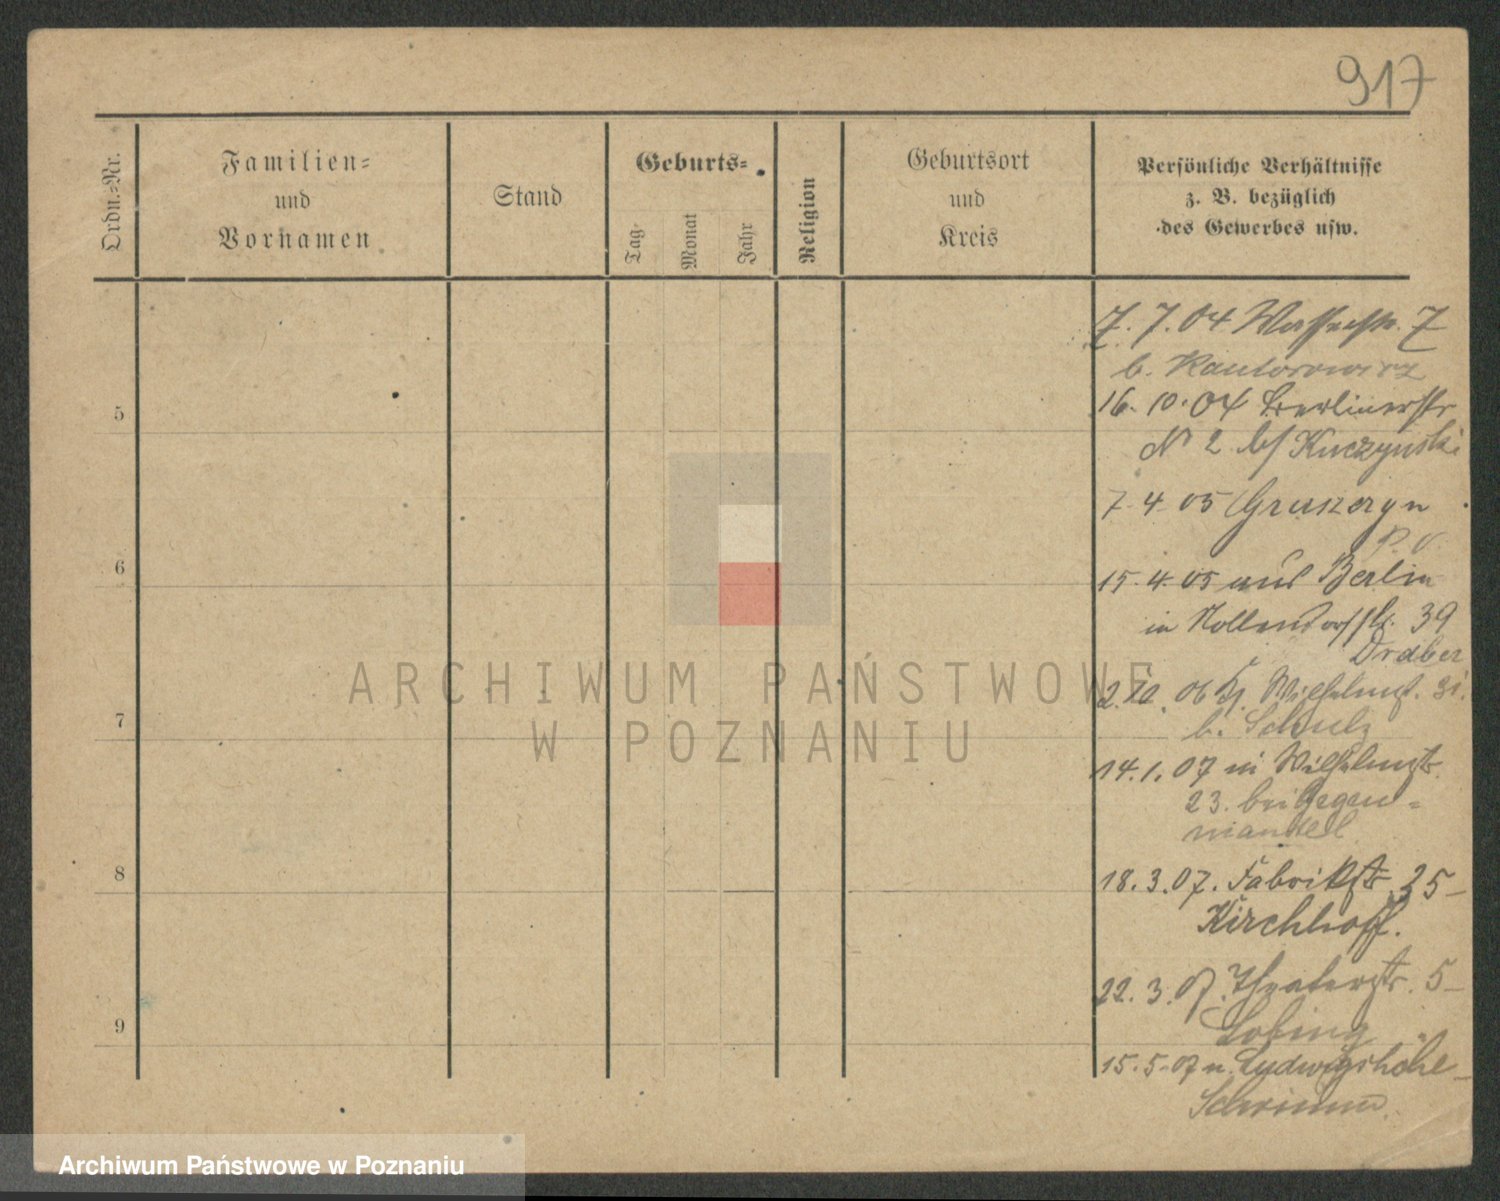 917
Ordn.-Nr.
Familien-
und
Vornamen
Stand
Geburts-
Tag
Monat
Jahr
Religion
Geburtsort
und
Kreis
Persönliche Verhältnisse
z. B. bezüglich
des Gewerbes usw.
7. 7. 04 Wasserstr. 7
b. Kantorowicz
5
16. 10. 04 Berlinerstr
No 2 bei Kuczynski
7. 4. 05 Gruszczyn
P. O.
6
15. 4. 05 aus Berlin
in Nollendorfstr. 39
Draber
2. 10. 06 Wilhelmst.
7
b. Schulz
14. 1. 07 in Wilhelmstr
23. bei Gegen-
mantel
8
18. 3. 07. Fabrikstr 25-
Kirchhoff.
22. 3. 07. Theaterstr. 5-
9
15. 5. 07 n. Ludwigshöhe-
Schrimm.
ARCHIWUM PAŃSTWOWE
W POZNANIU
Archiwum Państwowe w Poznaniu